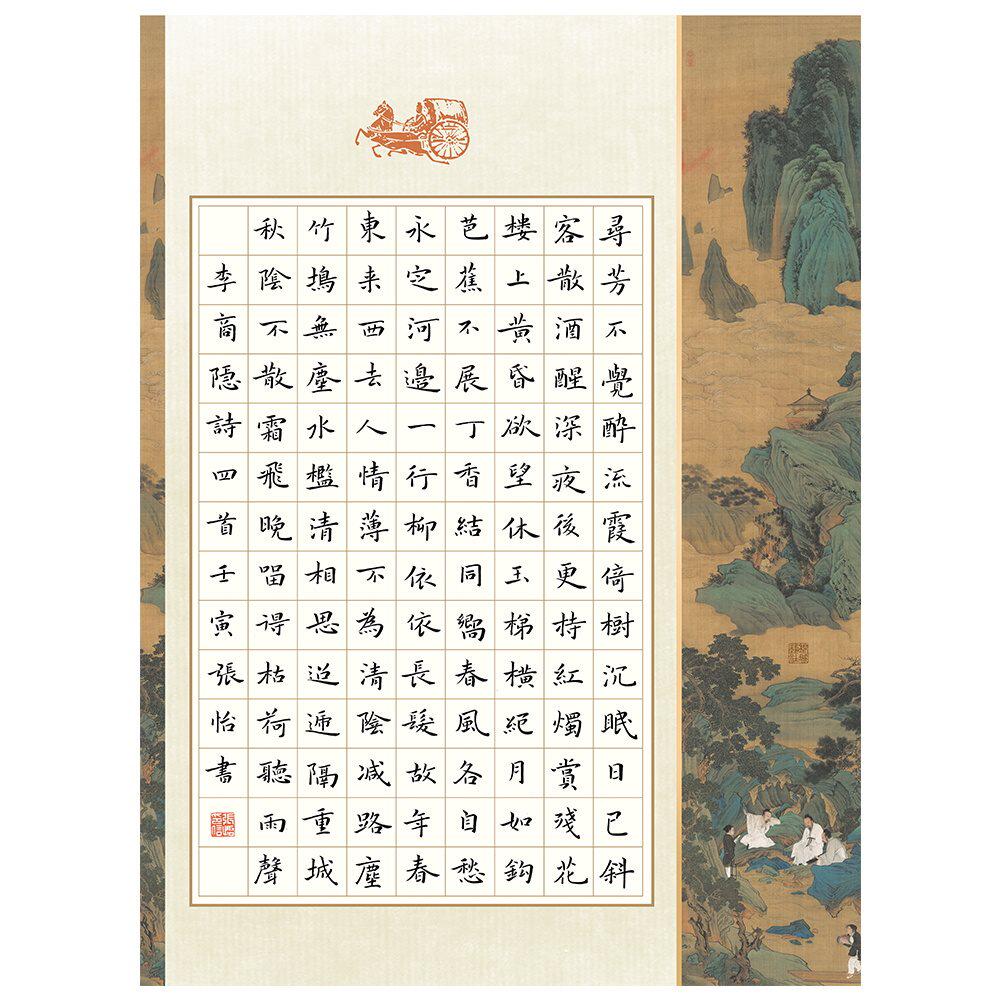 尋芳不覺醉流霞倚樹沉眠日已斜
客散酒醒深夜後更持紅燭賞殘花
楼上黃昏欲望休玉梯橫絕月如鈎
芭蕉不展丁香結同嚮春風各自愁
永定河邊一行柳依依長髮故年春
東来西去人情薄不為清陰减路塵
竹塢無塵水檻清相思迢遞隔重城
秋陰不散霜飛晚留得枯荷聽雨聲
李商隱詩四首壬寅張怡書